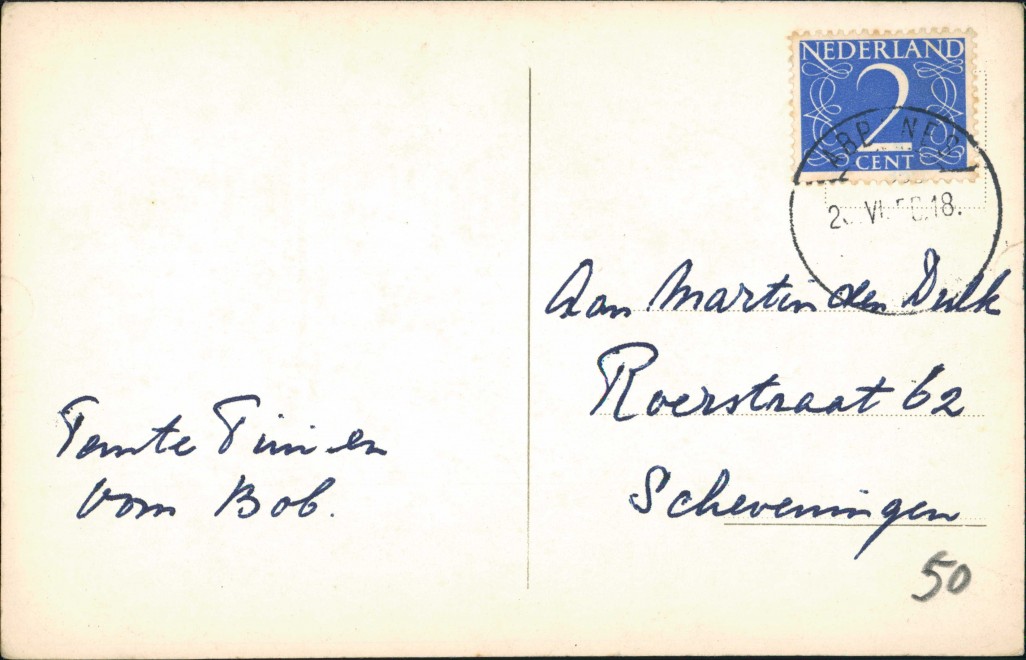 NEDERLAND
2
CENT
18.
Aan Martin den Dulk
Roerstraat 62
Scheveningen
Tante Tini en
Oom Bob.
50